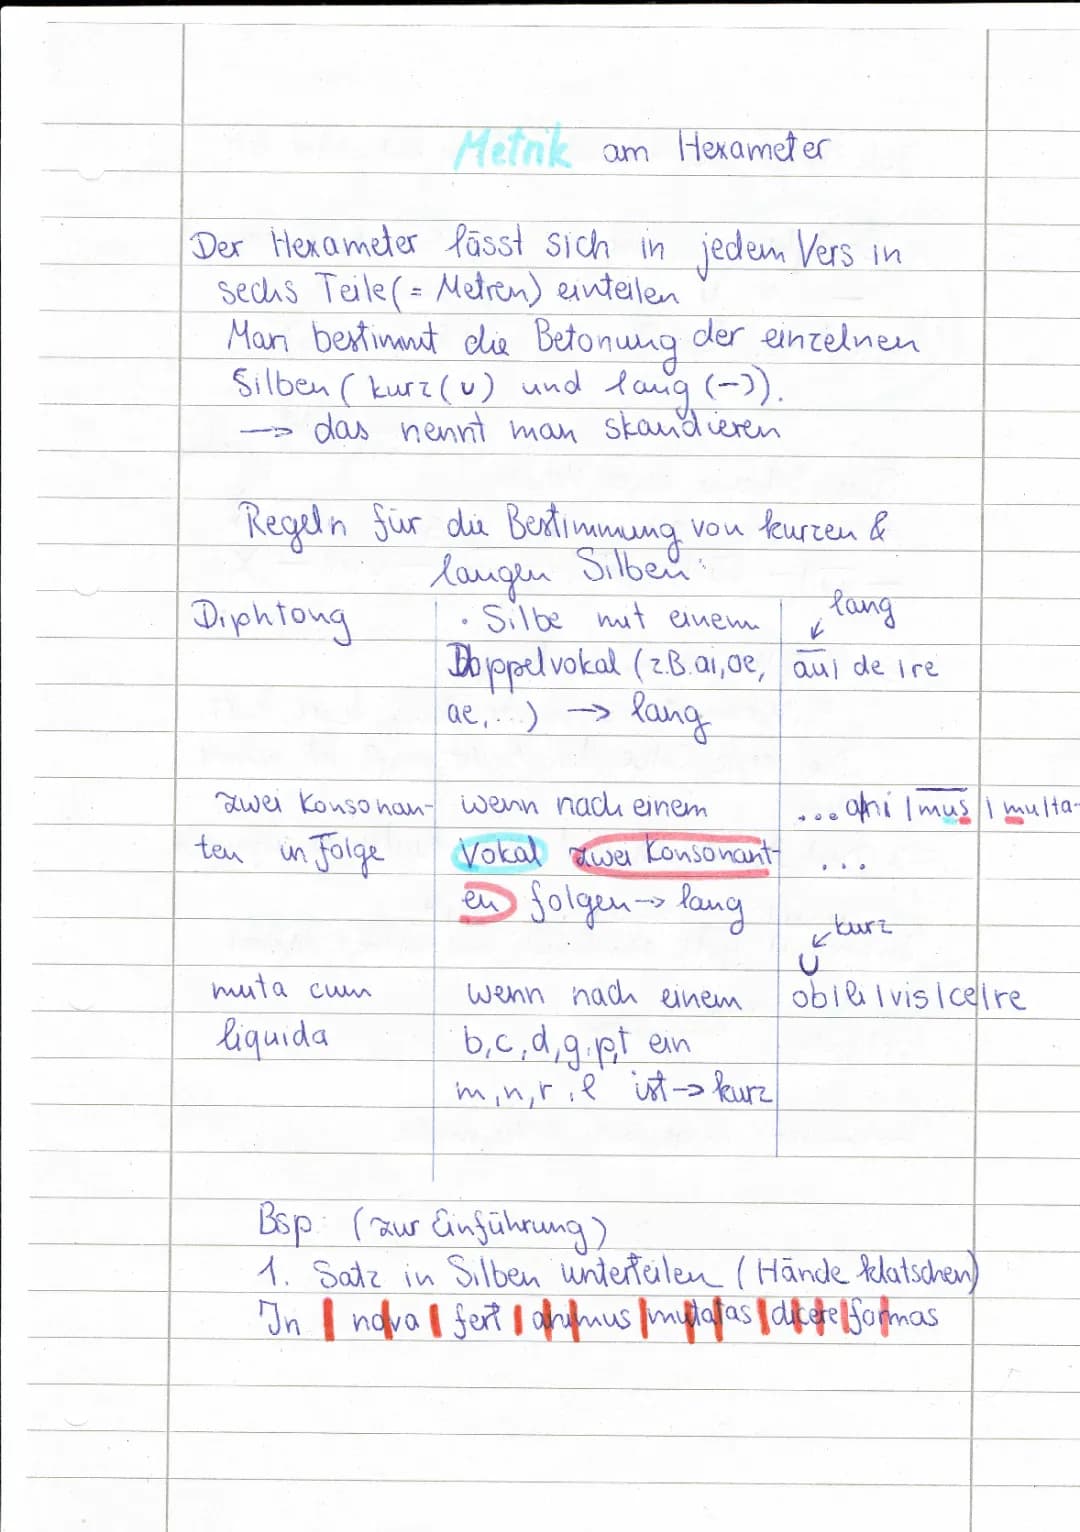 Metrik am Hexameter
Der Hexameter lässt sich in jedem Vers in
sechs Teile (= Metren) einteilen
Man bestimmt die Betonung der einzelnen
Silben (kurz (∪) und lang (–)).
→ das nennt man skandieren
Regeln für die Bestimmung von kurzen &
langen Silben:
Diphtong
· Silbe mit einem
Doppelvokal (z.B. ai, oe,
ae,...) → lang
lang
au| de |re
zwei Konsonan-
ten in Folge
wenn nach einem
Vokal zwei Konsonant-
en folgen → lang
... ani | mus | multa-
...
muta cum
liquida
wenn nach einem
b, c, d, g, p, t ein
m, n, r, l ist → kurz
kurz
∪
ob|li|vis|ce|re
Bsp: (zur Einführung)
1. Satz in Silben unterteilen (Hände klatschen)
In | no|va | fert | ani|mus |mu|ta|tas |di|ce|re|for|mas